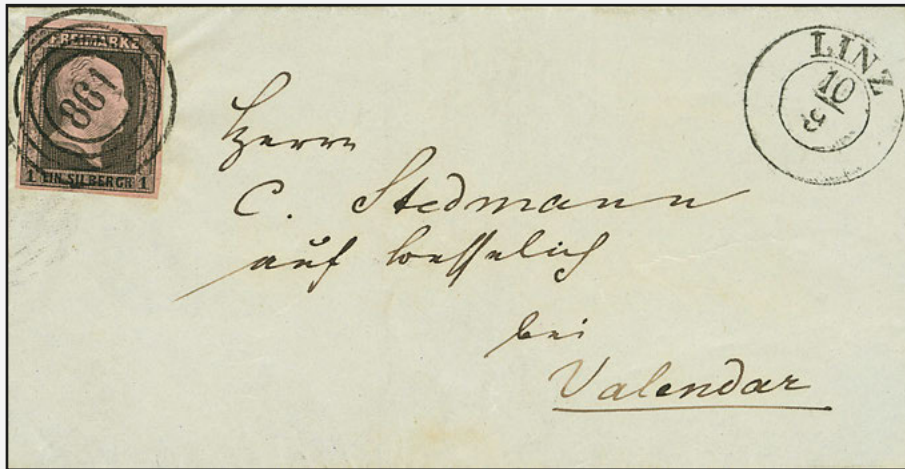 FREIMARKE
861
1 EIN SILBERGR 1
LINZ
10
9
Herrn
C. Stedmann
auf besselich
bei
Valendar